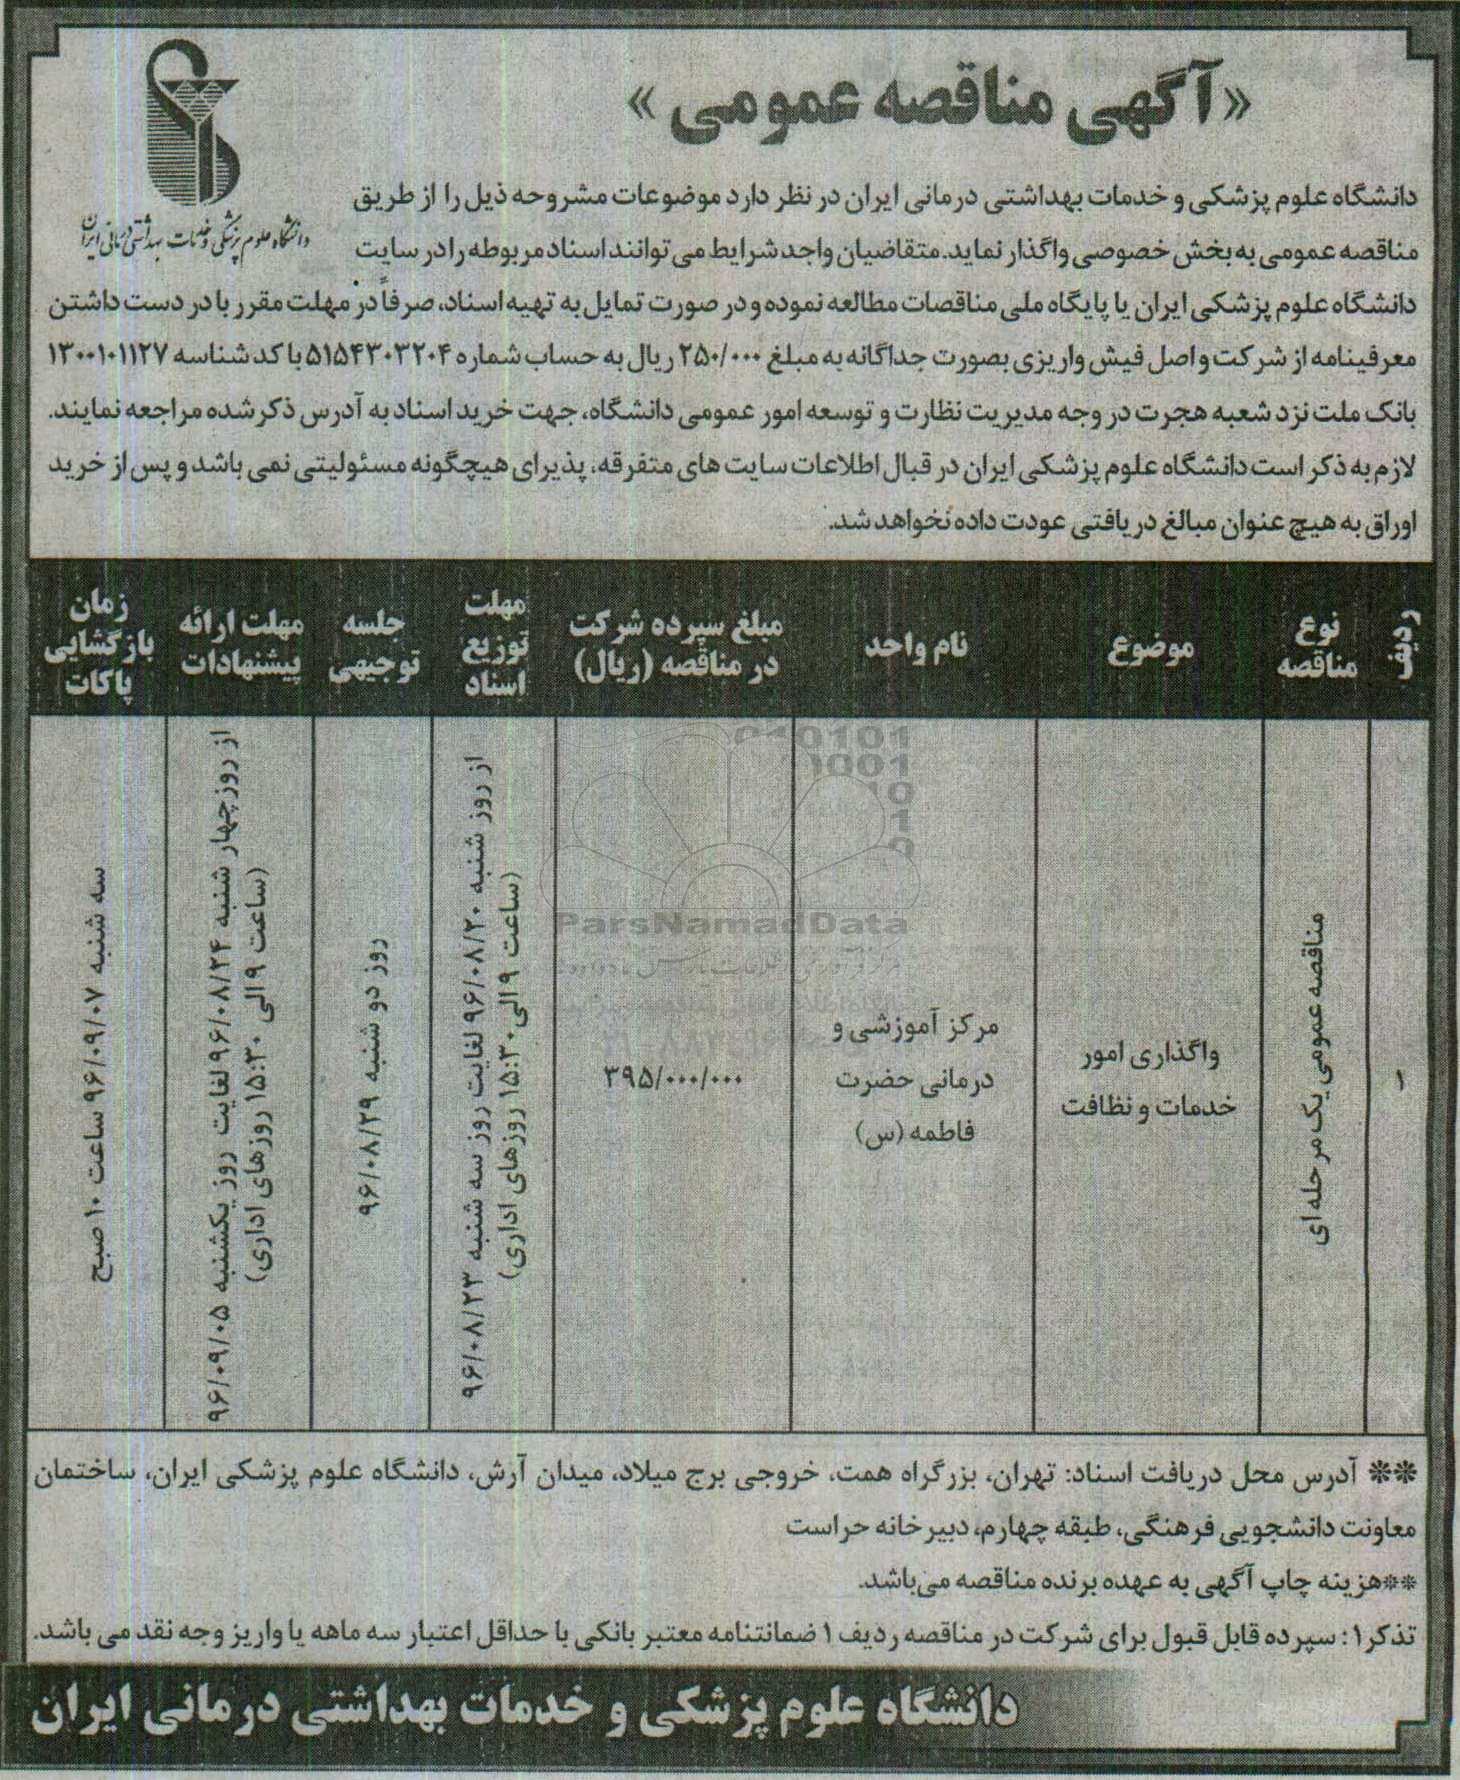 «آگهی مناقصه عمومی»
دانشگاه علوم پزشکی و خدمات بهداشتی درمانی ایران
دانشگاه علوم پزشکی و خدمات بهداشتی درمانی ایران در نظر دارد موضوعات مشروحه ذیل را از طریق
مناقصه عمومی به بخش خصوصی واگذار نماید. متقاضیان واجد شرایط می توانند اسناد مربوطه را در سایت
دانشگاه علوم پزشکی ایران یا پایگاه ملی مناقصات مطالعه نموده و در صورت تمایل به تهیه اسناد، صرفاً در مهلت مقرر با در دست داشتن
معرفینامه از شرکت و اصل فیش واریزی بصورت جداگانه به مبلغ ۲۵۰/۰۰۰ ریال به حساب شماره ۵۱۵۴۳۰۳۲۰۴ با کد شناسه ۱۳۰۰۱۰۱۱۲۷
بانک ملت نزد شعبه هجرت در وجه مدیریت نظارت و توسعه امور عمومی دانشگاه، جهت خرید اسناد به آدرس ذکر شده مراجعه نمایند.
لازم به ذکر است دانشگاه علوم پزشکی ایران در قبال اطلاعات سایت های متفرقه، پذیرای هیچگونه مسئولیتی نمی باشد و پس از خرید
اوراق به هیچ عنوان مبالغ دریافتی عودت داده نخواهد شد.
ردیف
نوع
مناقصه
موضوع
نام واحد
مبلغ سپرده شرکت
در مناقصه (ریال)
مهلت
توزیع
اسناد
جلسه
توجیهی
مهلت ارائه
پیشنهادات
زمان
بازگشایی
پاکات
۱
مناقصه عمومی یک مرحله ای
واگذاری امور
خدمات و نظافت
مرکز آموزشی و
درمانی حضرت
فاطمه (س)
۳۹۵/۰۰۰/۰۰۰
از روز شنبه ۹۶/۰۸/۲۰ لغایت روز سه شنبه ۹۶/۰۸/۲۳
(ساعت ۹ الی ۱۵:۳۰ روزهای اداری)
روز دو شنبه ۹۶/۰۸/۲۹
از روز چهار شنبه ۹۶/۰۸/۲۴ لغایت روز یکشنبه ۹۶/۰۹/۰۵
(ساعت ۹ الی ۱۵:۳۰ روزهای اداری)
سه شنبه ۹۶/۰۹/۰۷ ساعت ۱۰ صبح
ParsNamadData
** آدرس محل دریافت اسناد: تهران، بزرگراه همت، خروجی برج میلاد، میدان آرش، دانشگاه علوم پزشکی ایران، ساختمان
معاونت دانشجویی فرهنگی، طبقه چهارم، دبیرخانه حراست
**هزینه چاپ آگهی به عهده برنده مناقصه می‌باشد.
تذکر۱: سپرده قابل قبول برای شرکت در مناقصه ردیف ۱ ضمانتنامه معتبر بانکی با حداقل اعتبار سه ماهه یا واریز وجه نقد می باشد.
دانشگاه علوم پزشکی و خدمات بهداشتی درمانی ایران